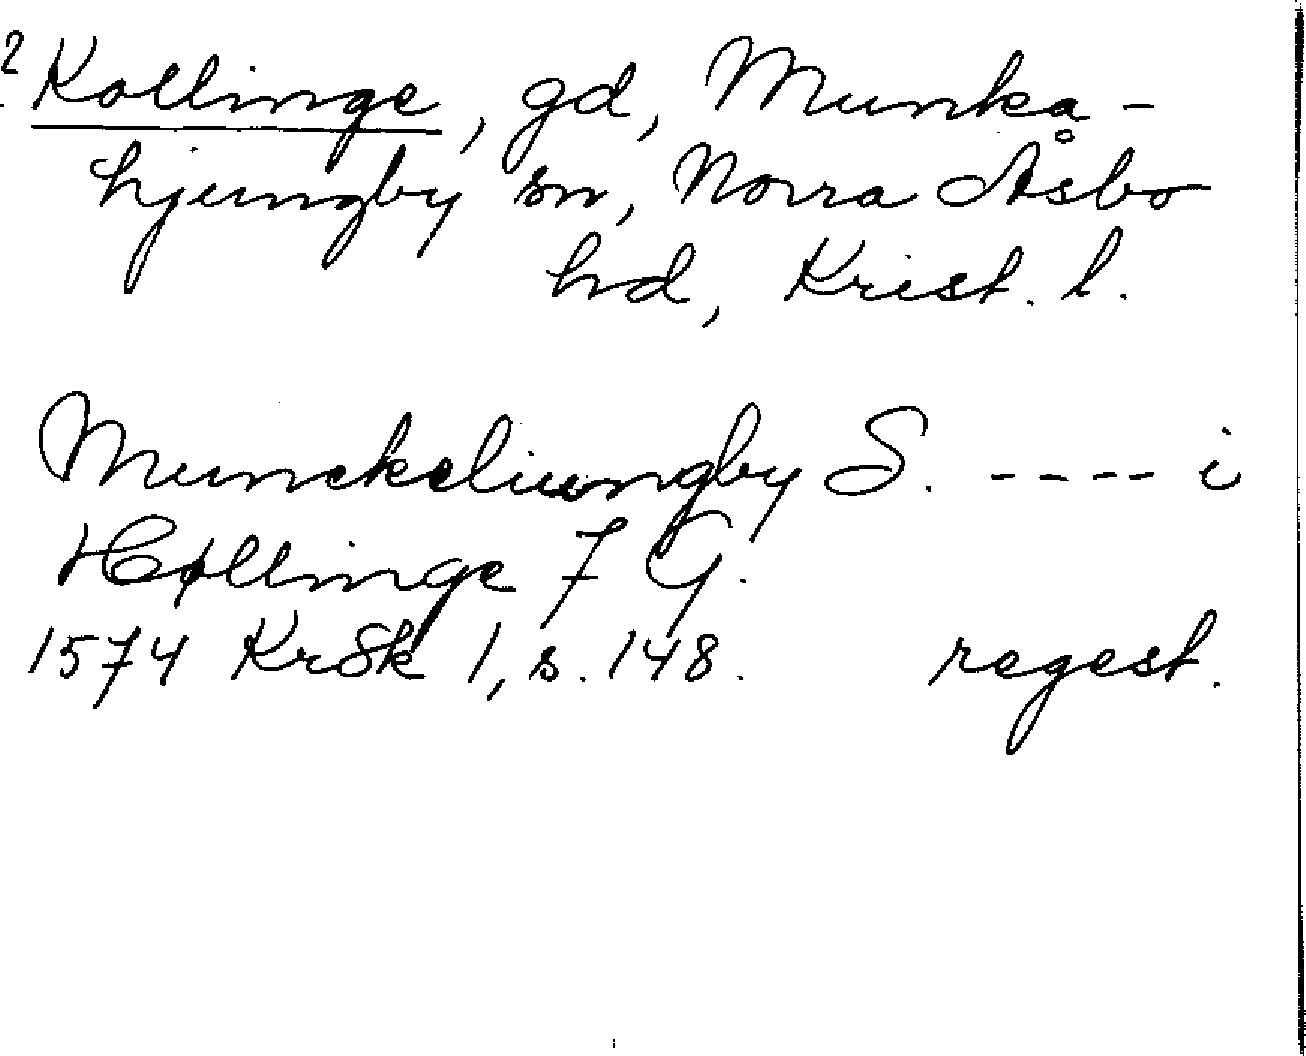 ? Kollinge, gd, Munka-
hjungby sn, Norra Åsbo
hd, Krist. l.
Munckeliungby S. ---- i
Høllinge 7 G.
1574 KrSk 1, s. 148. regest.